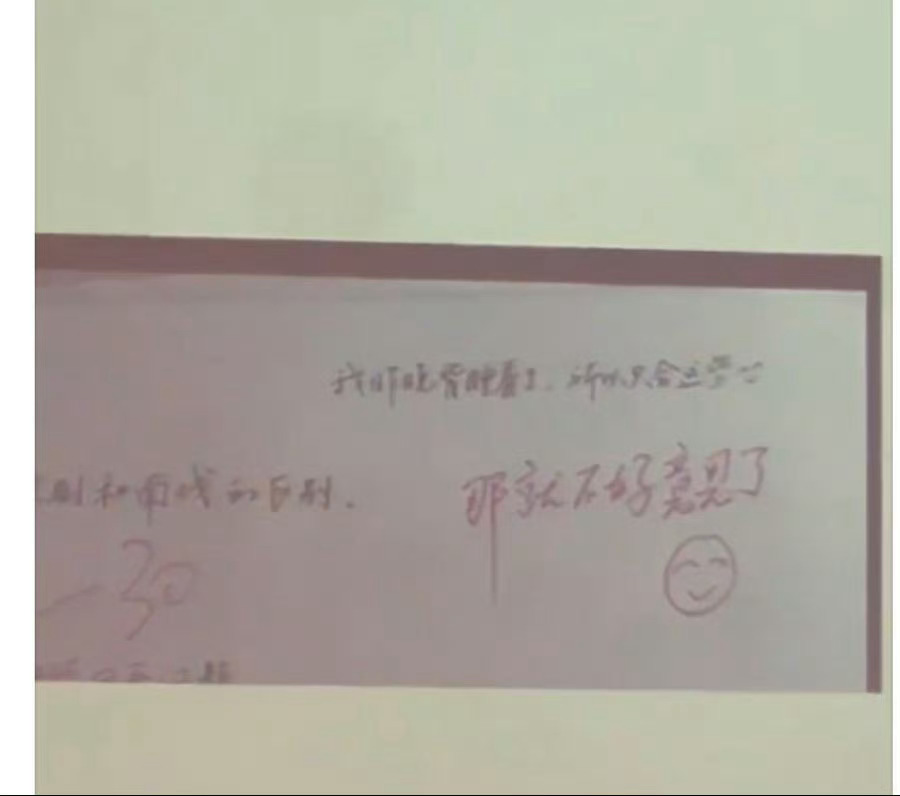 我昨晚背睡着了，所以只会这些
那就不好意思了
别和曲线的区别.
-30